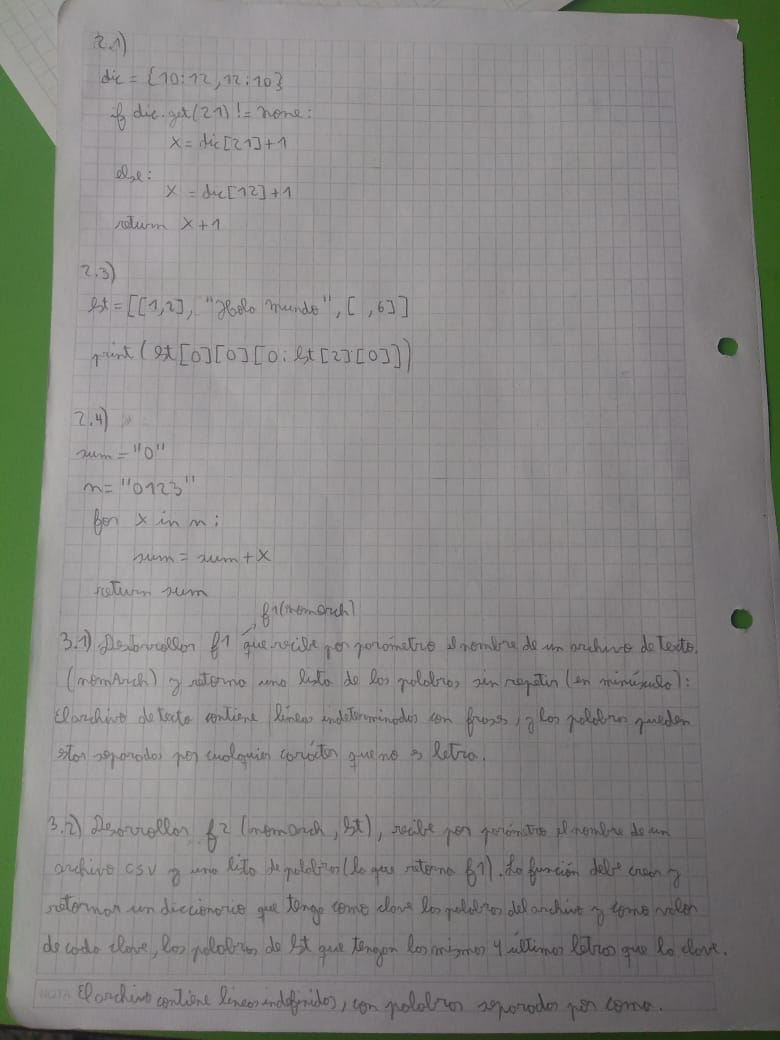 2.1)
dic = {10:12, 12:10}
if dic.get(21) != none:
x = dic[21]+1
else:
x = dic[12]+1
return x+1
2.3)
lst = [[1,2], "Hola mundo", [ ,6]]
print(lst[0][0][0:lst[2][0]])
2.4)
sum = "0"
n = "0123"
for x in n:
sum = sum + x
return sum
f1(nomarch)
3.1) Desarrollar f1 que recibe por parámetro el nombre de un archivo de texto.
(nomArch) y retorna una lista de las palabras sin repetir (en minúscula):
El archivo de texto contiene líneas indeterminadas con frases, y las palabras pueden
estar separadas por cualquier carácter que no es letra.
3.2) Desarrollar f2 (nomarch, lst), recibe por parámetro el nombre de un
archivo CSV y una lista de palabras (lo que retorna f1). La función debe crear y
retornar un diccionario que tenga como clave las palabras del archivo y como valor
de cada clave, las palabras de lst que tengan las mismas 4 últimas letras que la clave.
NOTA El archivo contiene líneas indefinidas, con palabras separadas por coma.